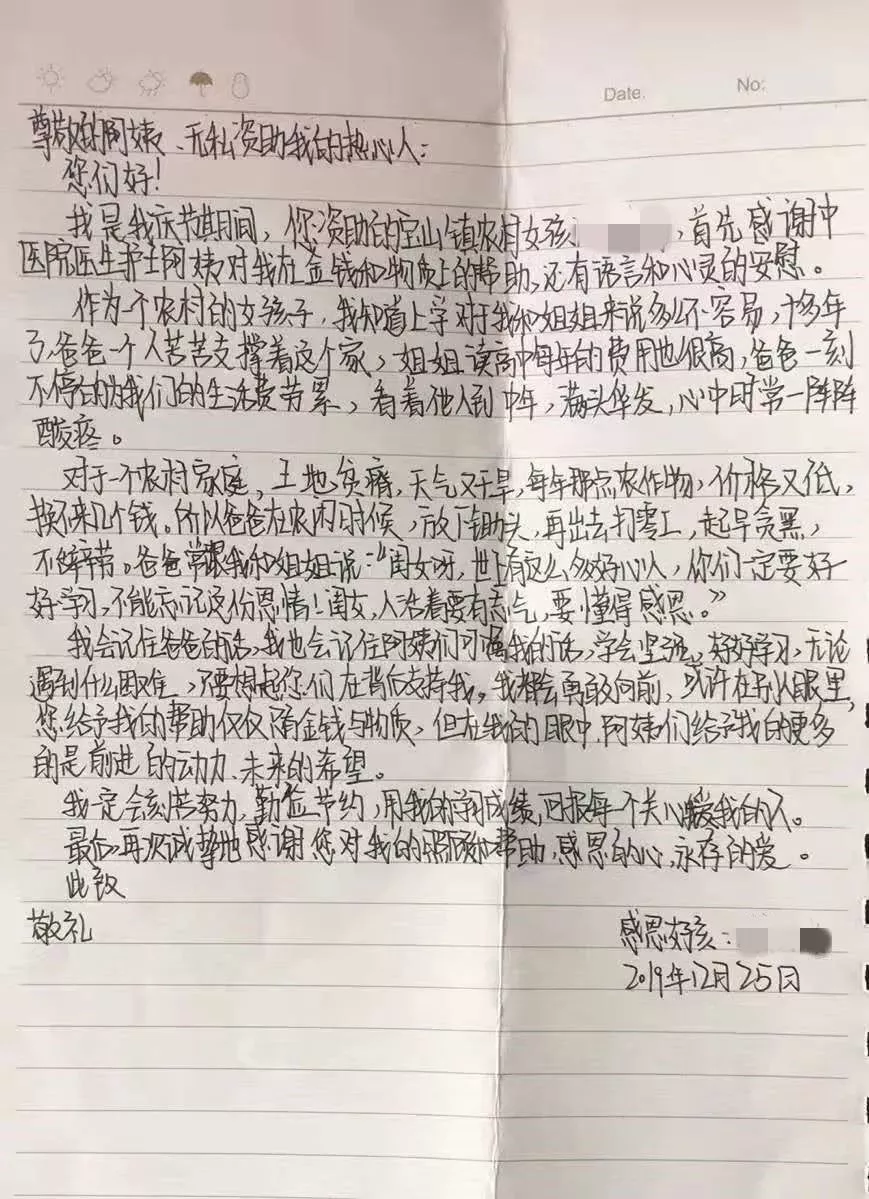 Date.
No:
尊敬的阿姨、无私资助我的热心人：
您们好！
我是我庆节期间，您资助的宝山镇农村女孩，首先感谢中
医院医生护士阿姨对我在金钱和物质上的帮助，还有语言和心灵的安慰。
作为一个农村的女孩子，我知道上学对于我和姐姐来说多么不容易，十多年
了，爸爸一个人苦苦支撑着这个家，姐姐读高中每年的费用也很高，爸爸一刻
不停的为我们的生活费劳累，看着他人到中年，满头华发，心中时常一阵阵
酸疼。
对于一个农村家庭，土地贫瘠，天气又干旱，每年那点农作物，价格又低，
换不来几个钱。所以爸爸在农闲时候，放下锄头，再出去打零工，起早贪黑，
不辞辛苦。爸爸常跟我和姐姐说：“闺女呀，世上有这么多好心人，你们一定要好
好学习，不能忘记这份恩情！闺女，人活着要有志气，要懂得感恩。”
我会记住爸爸的话，我也会记住阿姨们叮嘱我的话，学会坚强，好好学习，无论
遇到什么困难，只要想起您们在背后支持我，我都会勇敢向前，或许在别人眼里，
您给予我的帮助仅仅是金钱与物质，但在我的眼中，阿姨们给予我的更多
的是前进的动力、未来的希望。
我一定会刻苦努力，勤俭节约，用我的学习成绩，回报每个关心爱我的人。
最后，再次诚挚地感谢您对我的照顾和帮助，感恩的心，永存的爱。
此致
敬礼
感恩女孩：
2019年12月25日